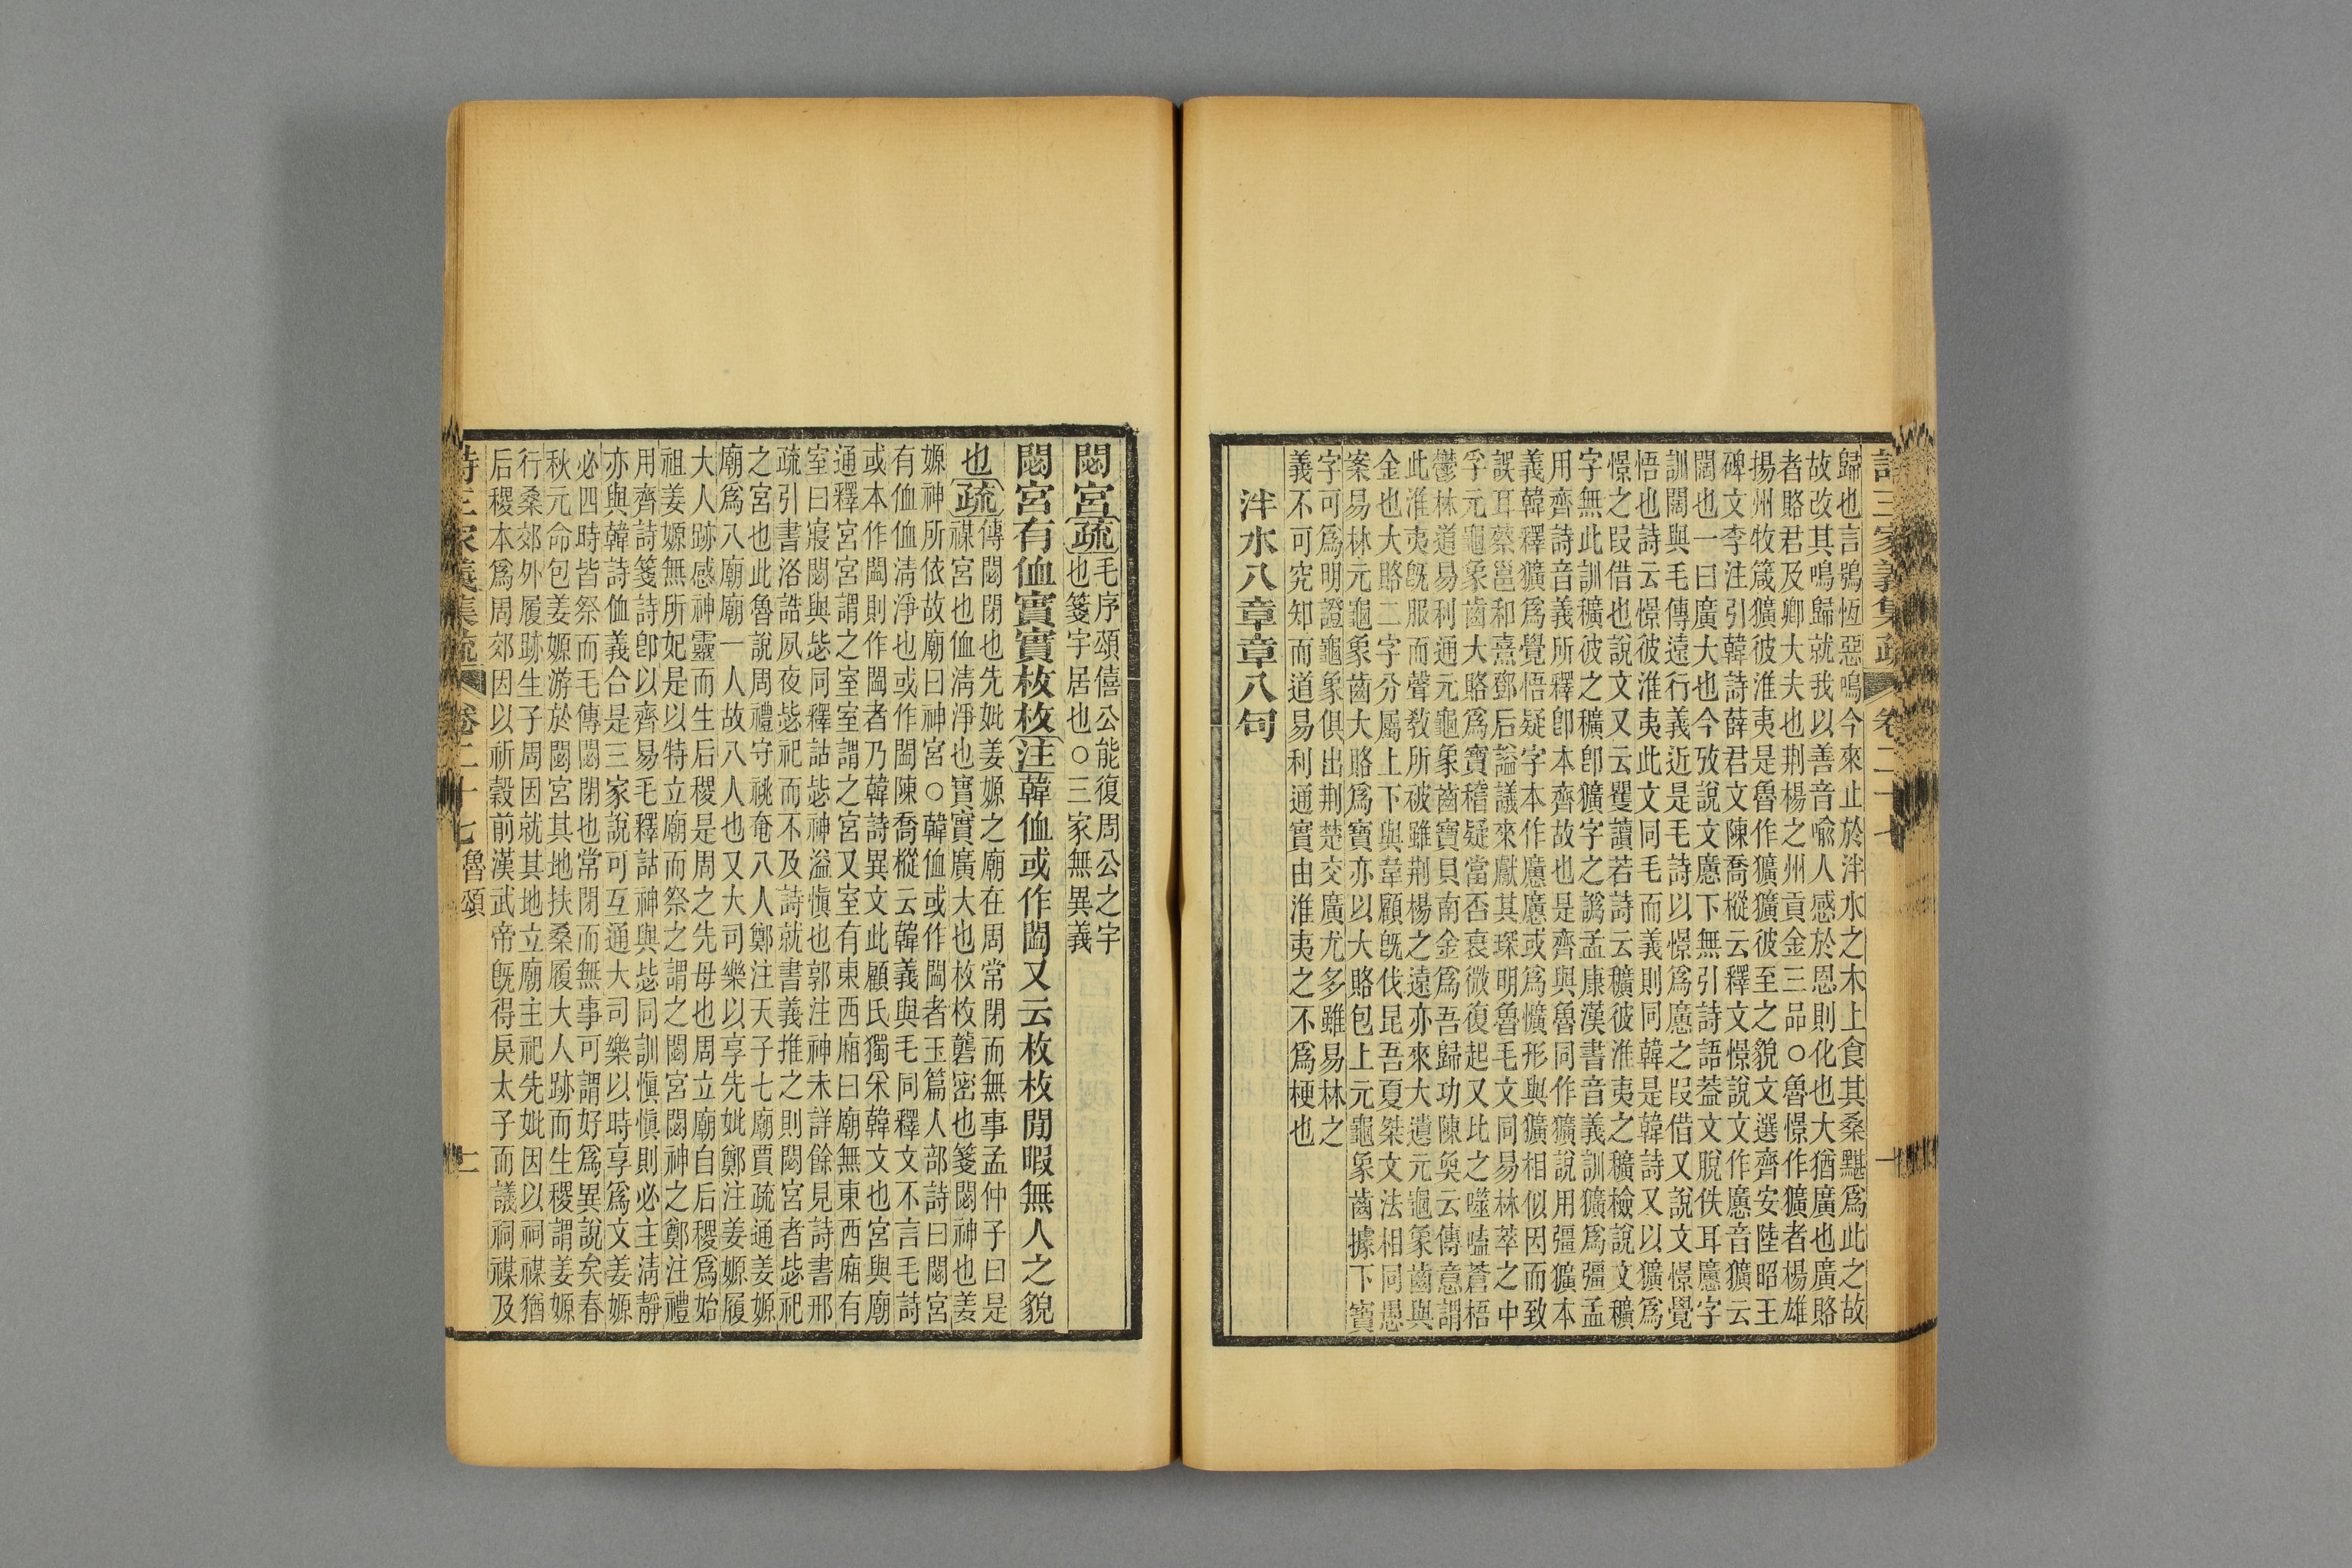 詩三家義集疏 卷二十七
歸也言鴞恆惡鳴今來止於泮水之木上食其桑黮爲此之故
故改其鳴歸就我以善音喻人感於恩則化也大猶廣也廣賂
者賂君及卿大夫也荆楊之州貢金三品○魯憬作獷者楊雄
揚州牧箴獷彼淮夷是魯作獷獷彼至之貌文選齊安陸昭王
碑文李注引韓詩薛君文陳喬樅云釋文憬說文作懬音獷云
闊也一曰廣大也今攷說文懬下無引詩語葢文脫佚耳懬字
訓闊與毛傳遠行義近是毛詩以憬爲懬之叚借又說文憬覺
悟也詩云憬彼淮夷此文同毛而義則同韓是韓詩又以獷爲
憬之叚借也說文又云矍讀若詩云穬彼淮夷之穬檢說文穬
字無此訓穬彼之穬卽獷字之譌孟康漢書音義訓獷爲彊孟
用齊詩音義所釋卽本齊故也是齊與魯同作獷說用彊獷本
義韓釋獷爲覺悟疑字本作懬懬或爲懭形與獷相似因而致
誤耳蔡邕和熹鄧后謚議來獻其琛明魯毛文同易林萃之中
孚元龜象齒大賂爲寶稽疑當否衰微復起又比之噬嗑蒼梧
鬱林道易利通元龜象齒寶貝南金爲吾歸功陳奐云傳意謂
此淮夷旣服而聲敎所被雖荆楊之遠亦來大遺元龜象齒與
金也大賂二字分屬上下與韋顧旣伐昆吾夏桀文法相同愚
案易林元龜象齒大賂爲寶亦以大賂包上元龜象齒據下寶
字可爲明證龜象俱出荆楚交廣尤多雖易林之
義不可究知而道易利通實由淮夷之不爲梗也
泮水八章章八句
閟宮疏毛序頌僖公能復周公之宇
也箋宇居也○三家無異義
閟宮有侐實實枚枚注韓侐或作閫又云枚枚閒暇無人之貌
也疏傳閟閉也先妣姜嫄之廟在周常閉而無事孟仲子曰是
禖宮也侐淸淨也實實廣大也枚枚礱密也箋閟神也姜
嫄神所依故廟曰神宮○韓侐或作閫者玉篇人部詩曰閟宮
有侐侐淸淨也或作閫陳喬樅云韓義與毛同釋文不言毛詩
或本作閫則作閫者乃韓詩異文此顧氏獨采韓文也宮與廟
通釋宮宮謂之室室謂之宮又室有東西廂曰廟無東西廂有
室曰寢閟與毖同釋詁毖神溢愼也郭注神未詳餘見詩書邢
疏引書洛誥夙夜毖祀而不及詩就書義推之則閟宮者毖祀
之宮也此魯說周禮守祧奄八人鄭注天子七廟賈疏通姜嫄
廟爲八廟廟一人故八人也又大司樂以享先妣鄭注姜嫄履
大人跡感神靈而生后稷是周之先母也周立廟自后稷爲始
祖姜嫄無所妃是以特立廟而祭之謂之閟宮閟神之鄭注禮
用齊詩箋詩卽以齊易毛釋詁神與毖同訓愼愼則必主淸靜
亦與韓詩侐義合是三家說可互通大司樂以時享爲文姜嫄
必四時皆祭而毛傳閟閉也常閉而無事可謂好爲異說矣春
秋元命包姜嫄游於閟宮其地扶桑履大人跡而生稷謂姜嫄
行桑郊外履跡生子周因就其地立廟主祀先妣因以祠禖猶
后稷本爲周郊因以祈穀前漢武帝旣得戾太子而議祠禖及
詩三家義集疏 卷二十七 魯頌 二